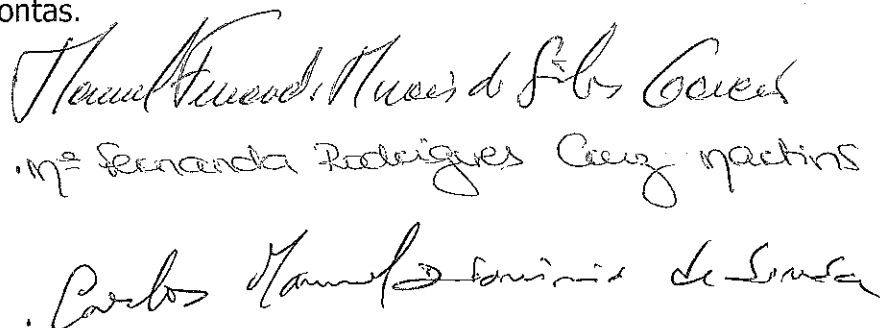 ontas.
Manuel Fernando Murais da Silva
.Mª Fernanda Rodrigues Cruz Martins
. Carlos Manuel de Sousa